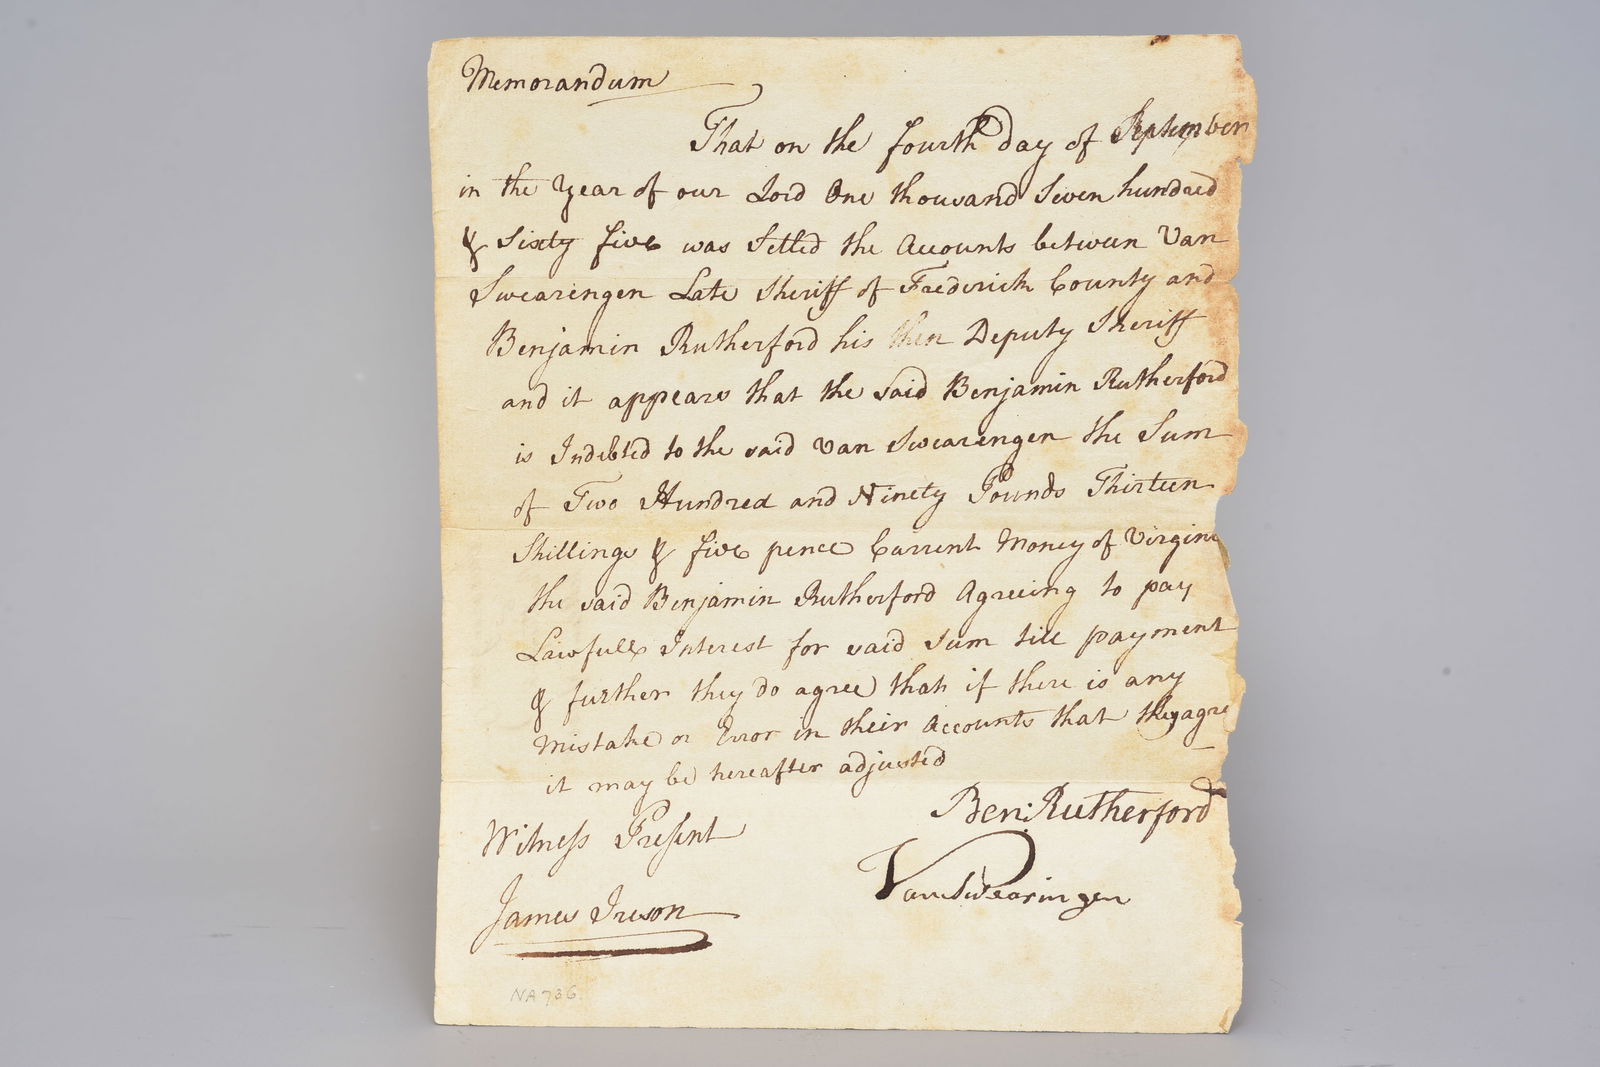 Memorandum
That on the fourth day of September
in the Year of our Lord One thousand Seven hundred
& Sixty five was Setled the Accounts between Van
Swearengen Late Sheriff of Frederick County and
Benjamin Rutherford his then Deputy Sheriff
and it appears that the said Benjamin Rutherford
is Indebted to the said Van Swearengen the Sum
of Two Hundred and Ninety Pounds Thirteen
Shillings & five pence Current Money of Virgini
the said Benjamin Rutherford Agreeing to pay
Lawfull Interest for said Sum till payment
& further they do agree that if there is any
Mistake or Error in their Accounts that they agre
it may be hereafter adjusted
Ben: Rutherford
Witness Present
Van Swearingen
James Ireson
NA736